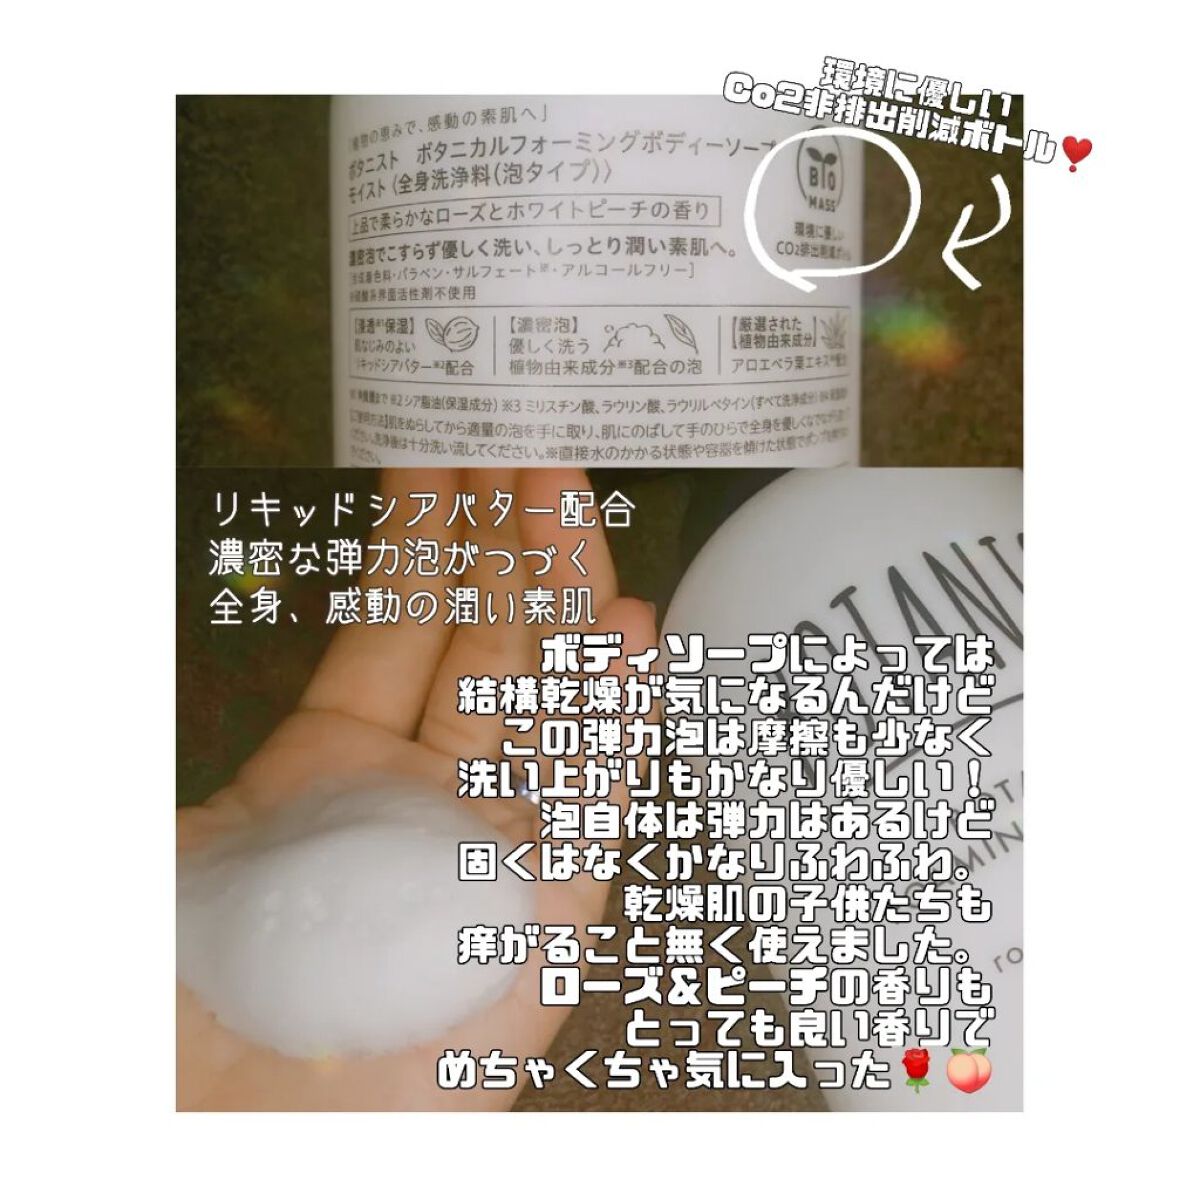 環境に優しい
Co2非排出削減ボトル❣️
「植物の恵みで、感動の素肌へ」
ボタニスト ボタニカルフォーミングボディーソープ
モイスト〈全身洗浄料(泡タイプ)〉
上品で柔らかなローズとホワイトピーチの香り
濃密泡でこすらず優しく洗い、しっとり潤い素肌へ。
[合成着色料・パラベン・サルフェート※・アルコールフリー]
※硫酸系界面活性剤不使用
BIO
MASS
環境に優しい
CO2排出削減ボトル
【浸透※1保湿】
肌なじみのよい
リキッドシアバター※2配合
【濃密泡】
優しく洗う
植物由来成分※3配合の泡
【厳選された
植物由来成分】
アロエベラ葉エキス
※2 シア脂油(保湿成分) ※3 ミリスチン酸、ラウリン酸、ラウリルベタイン(すべて洗浄成分)
肌をぬらしてから適量の泡を手に取り、肌にのばして手のひらで全身を優しくなでながら
ください。洗浄後は十分洗い流してください。※直接水のかかる状態や容器を傾けた状態でポンプを
ください。
リキッドシアバター配合
濃密な弾力泡がつづく
全身、感動の潤い素肌
BOTANI
ボディソープによっては
結構乾燥が気になるんだけど
この弾力泡は摩擦も少なく
洗い上がりもかなり優しい!
泡自体は弾力はあるけど
固くはなくかなりふわふわ。
乾燥肌の子供たちも
痒がること無く使えました。
ローズ&ピーチの香りも
とっても良い香りで
めちゃくちゃ気に入った🌹🍑